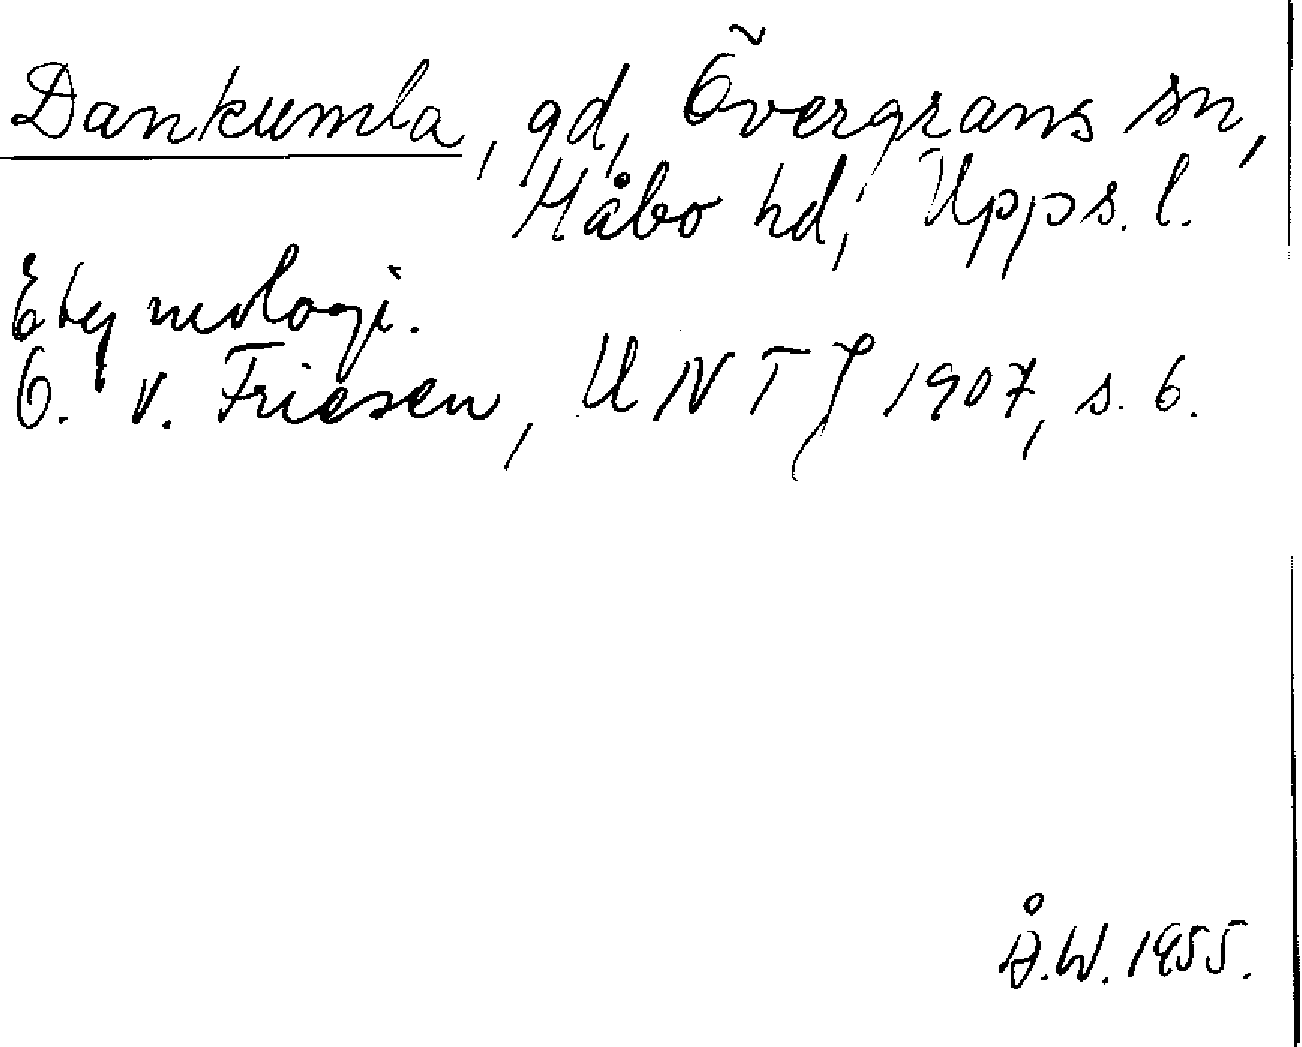 Dankumla, gd, Övergrans sn,
Håbo hd, Upps. l.
Etymologi.
O. v. Friesen, UNT J 1907, s. 6.
Å.W. 1955.